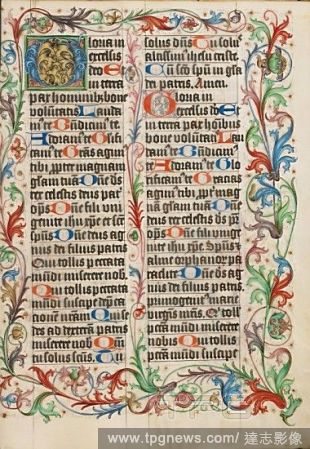 Gloria in
excelsis
deo Et
in terra
pax hominibus bone
voluntatis Laudam
te Bndicimus te
Adoramus te Glorifi
camus te Gratias agimus
tibi propter magnam
gliam tuam Dne deus
rex celestis deus pater
omps Dne fili uni
genite ihu xpe et sce
spus Dne deus ag
nus dei filius patris
Qui tollis peccata
mundi miserere nob
Qui tollis peccata
mundi suscipe depca
tionem nram Qui se
des ad dexteram patris
miserere nobis Qm
tu solus scus Tu
solus dns Tu solus
altissimus ihu criste
Cu sco spu in gla
dei patris Amen
Gloria in
excelsis deo Et
in terra pax hoibus
bone voluntatis Lau
damus te Bndicimus te
Adoramus te Glo
ficamus te Gratias
agimus tibi propter mag
nam gliam tuam Dne
deus rex celestis deus pr
omps Dne fili uni
genite ihu xpe Spus
alme orphanorum pa
raclite Dne deus ag
nus dei filius patris
primogenitus marie
virginis matris Qui tollis
pcca mundi miserere
nobis Qui tollis
pcca mundi suscipe
www.tpgnews.com/ 達志影像